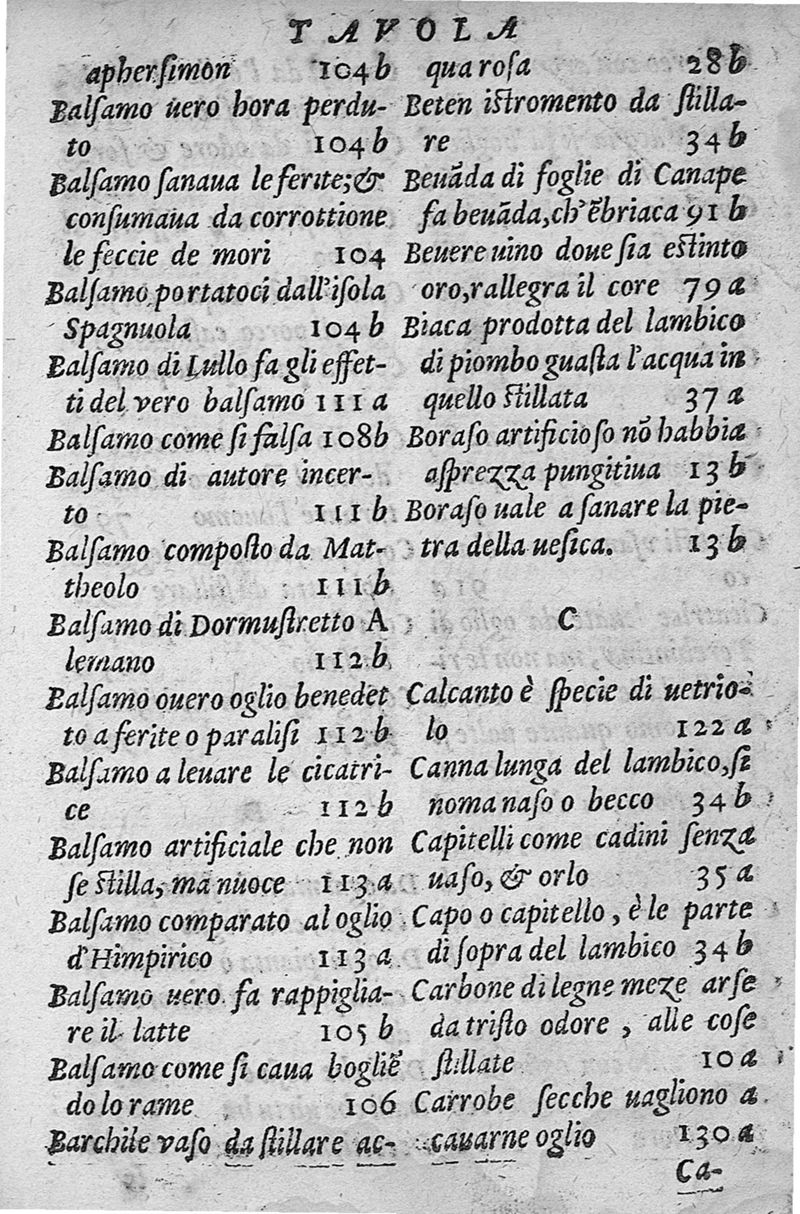 TAVOLA
aphersimon 104 b
Balsamo uero hora perdu-
to 104 b
Balsamo sanaua le ferite; &
consumaua da corrottione
le feccie de mori 104
Balsamo portatoci dall'isola
Spagnuola 104 b
Balsamo di Lullo fa gli effet-
ti del vero balsamo 111 a
Balsamo come si falsa 108 b
Balsamo di autore incer-
to 111 b
Balsamo composto da Mat-
theolo 111 b
Balsamo di Dormustretto A
lemano 112 b
Balsamo ouero oglio benedet
to a ferite o paralisi 112 b
Balsamo a leuare le cicatri-
ce 112 b
Balsamo artificiale che non
se stilla, ma nuoce 113 a
Balsamo comparato al oglio
d'Himpirico 113 a
Balsamo uero fa rappiglia-
re il latte 105 b
Balsamo come si caua bogliẽ
do lo rame 106
Barchile vaso da stillare ac-
qua rosa 28 b
Beten istromento da stilla-
re 34 b
Beuãda di foglie di Canape
fa beuãda, ch'ẽbriaca 91 b
Beuere uino doue sia estinto
oro, rallegra il core 79 a
Biaca prodotta del lambico
di piombo guasta l'acqua in
quello stillata 37 a
Boraso artificioso nõ habbia
asprezza pungitiua 13 b
Boraso uale a sanare la pie-
tra della uesica. 13 b
C
Calcanto è specie di uetrio-
lo 122 a
Canna lunga del lambico, si
noma naso o becco 34 b
Capitelli come cadini senza
uaso, & orlo 35 a
Capo o capitello, è le parte
di sopra del lambico 34 b
Carbone di legne meze arse
da tristo odore, alle cose
stillate 10 a
Carrobe secche uagliono a
cauarne oglio 130 a
Ca-